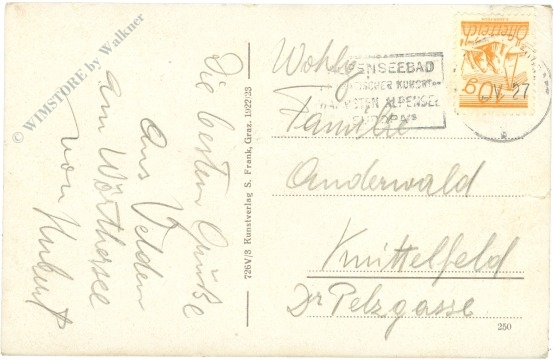 © WIMSTORE by Walkner
Die besten Grüße
aus Velden
am Wörthersee
von Hubert
726V/3 Kunstverlag S. Frank, Graz. 1922/23
ENSEEBAD
ALPENSEE
EUROPAS
27
Österreich
Wohlg.
Familie
Anderwald
Knittelfeld
Dr Pelzgasse
250